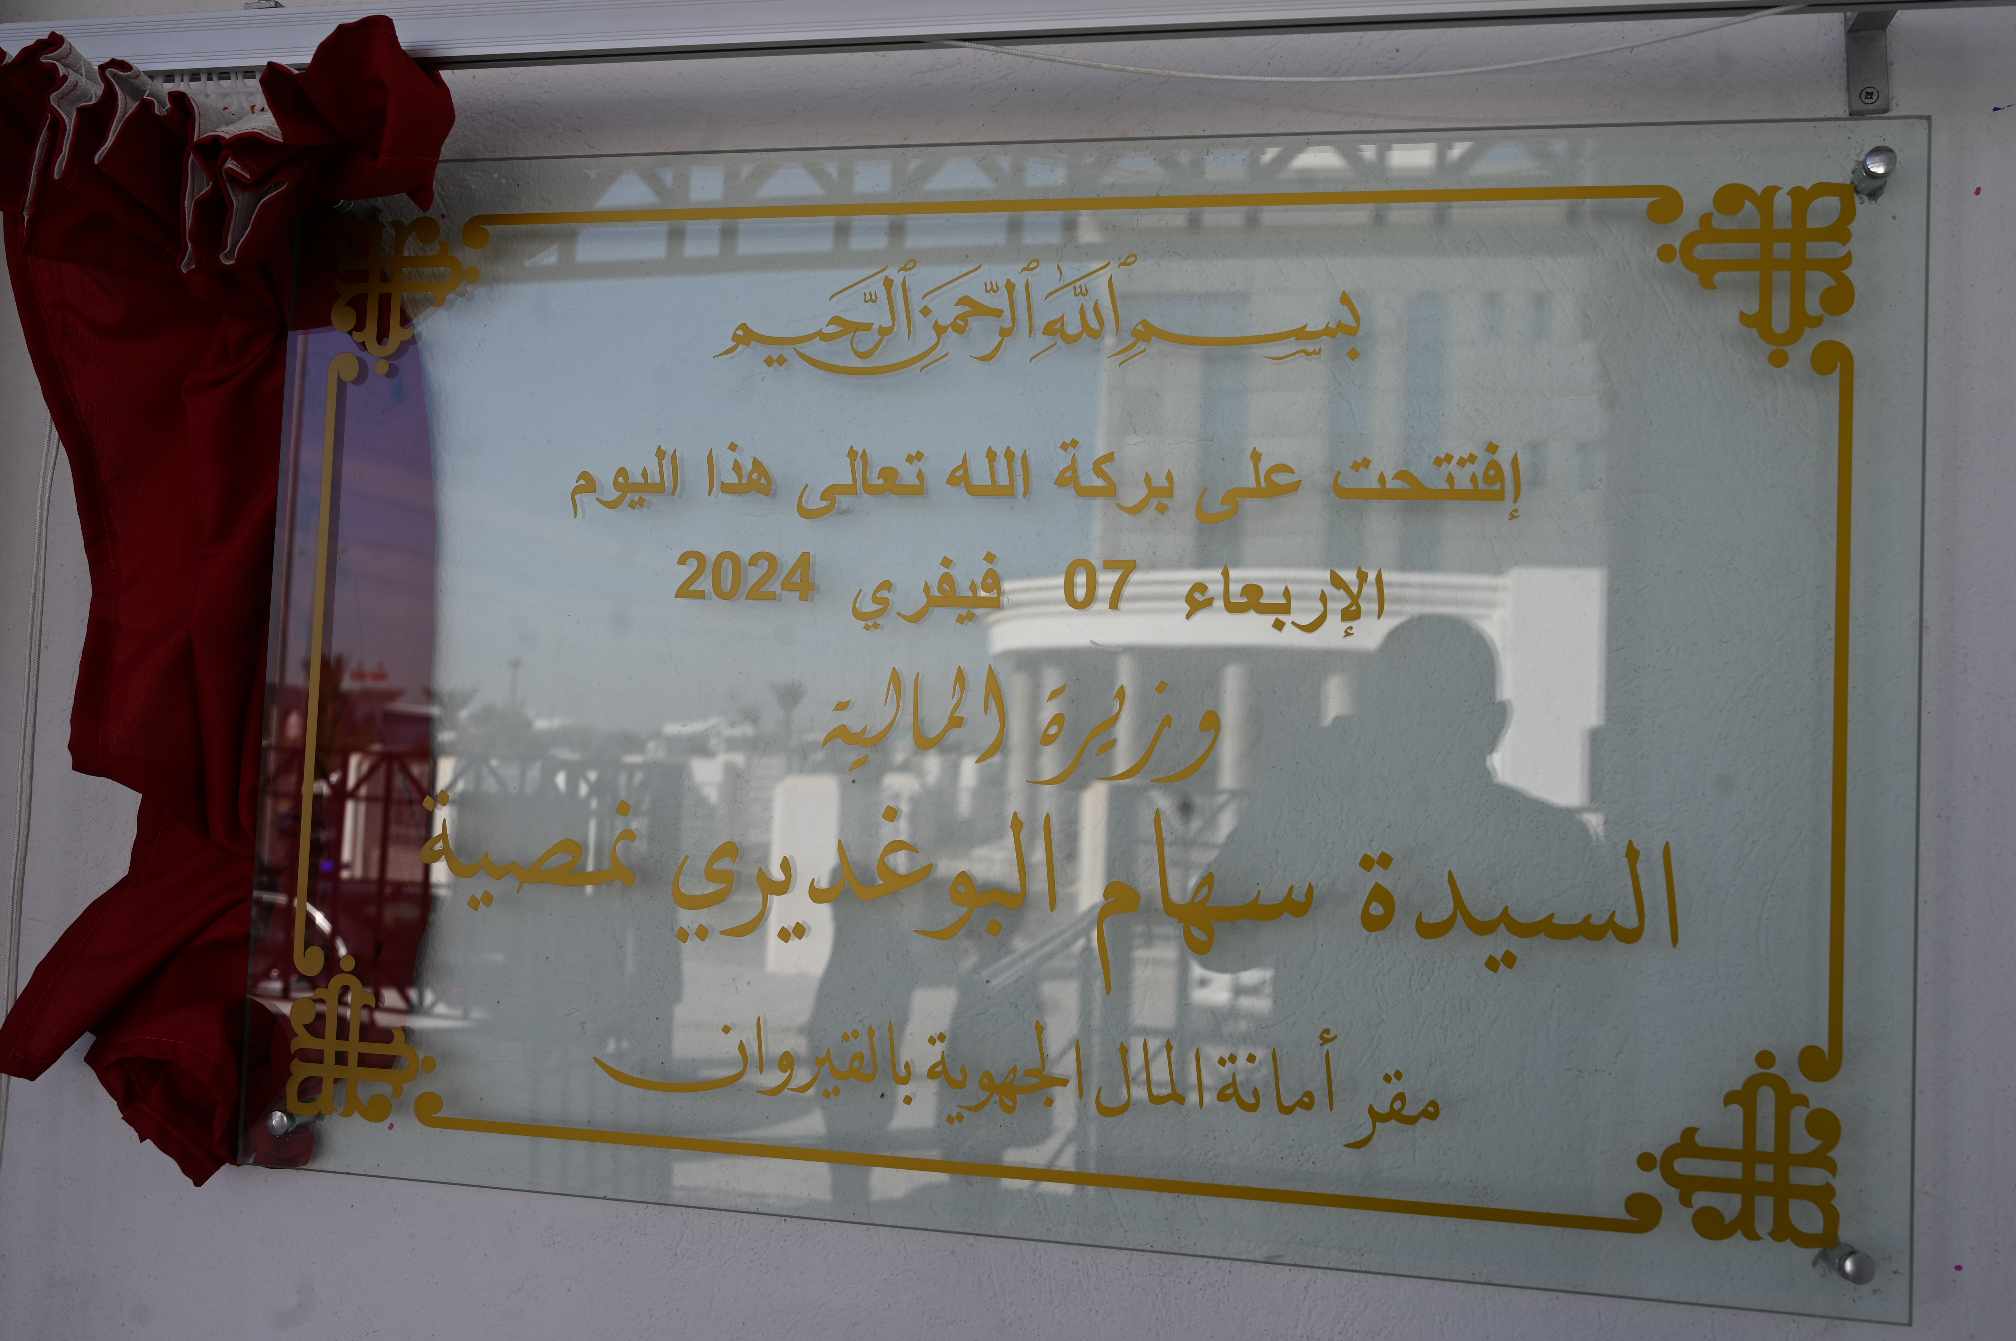 بِسْمِ ٱللَّهِ ٱلرَّحْمَنِ ٱلرَّحِيمِ
إفتتحت على بركة الله تعالى هذا اليوم
الإربعاء 07 فيفري 2024
وزيرة المالية
السيدة سهام البوغديري نمصية
مقر أمانة المال الجهوية بالقيروان